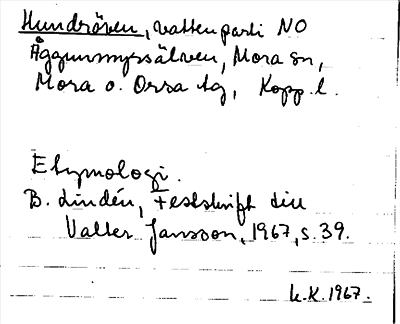 Hundröven, vattenparti NO
Äggunmyrsälven, Mora sn,
Mora o. Orsa tg, Kopp. l.
Etymologi.
B. Lindén, Festskrift till
Valter Jansson, 1967, s. 39.
k.K. 1967.